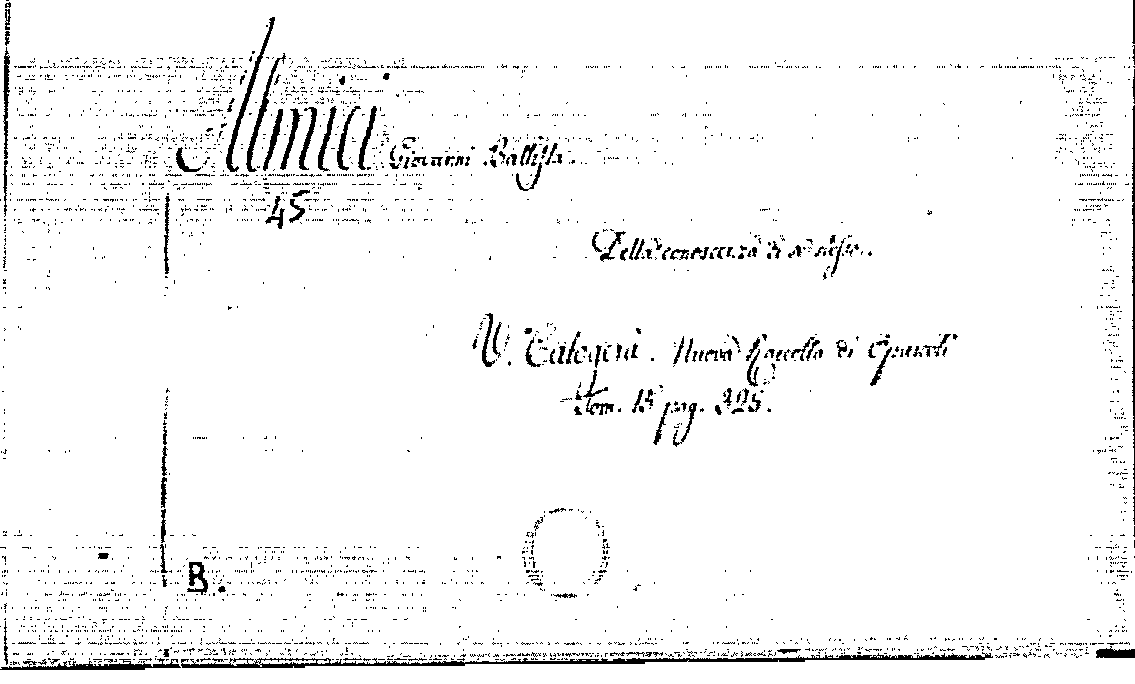 Almici Giovanni Battista.
45
Della conoscenza di se stesso.
V. Calogerà. Nuova Raccolta di Opuscoli
Tom. 15 pag. 325.
B.